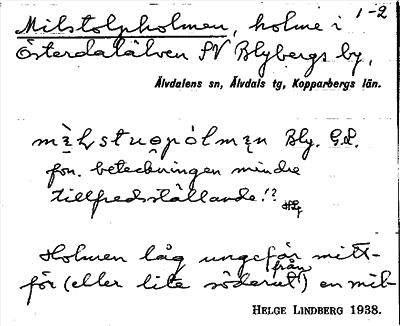 1-2
Milstolpholmen, holme i
Österdalälven SV Blybergs by,
Älvdalens sn, Älvdals tg, Kopparbergs län.
Bly. G.L.
fon. beteckningen mindre
tillfredsställande!?
HLg
Holmen låg ungefär mitt-
för (eller lite söderut från) en mil-
HELGE LINDBERG 1938.